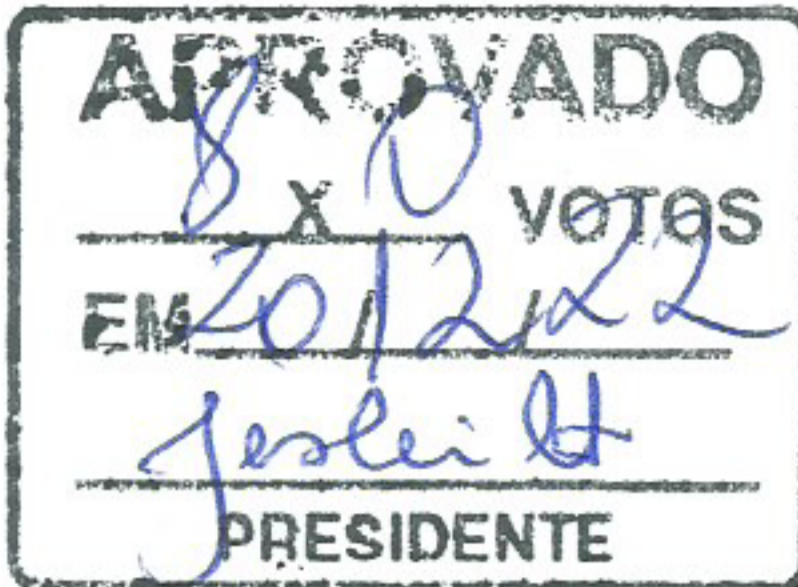 APROVADO
8 X 0 VOTOS
EM 20/12/22
PRESIDENTE